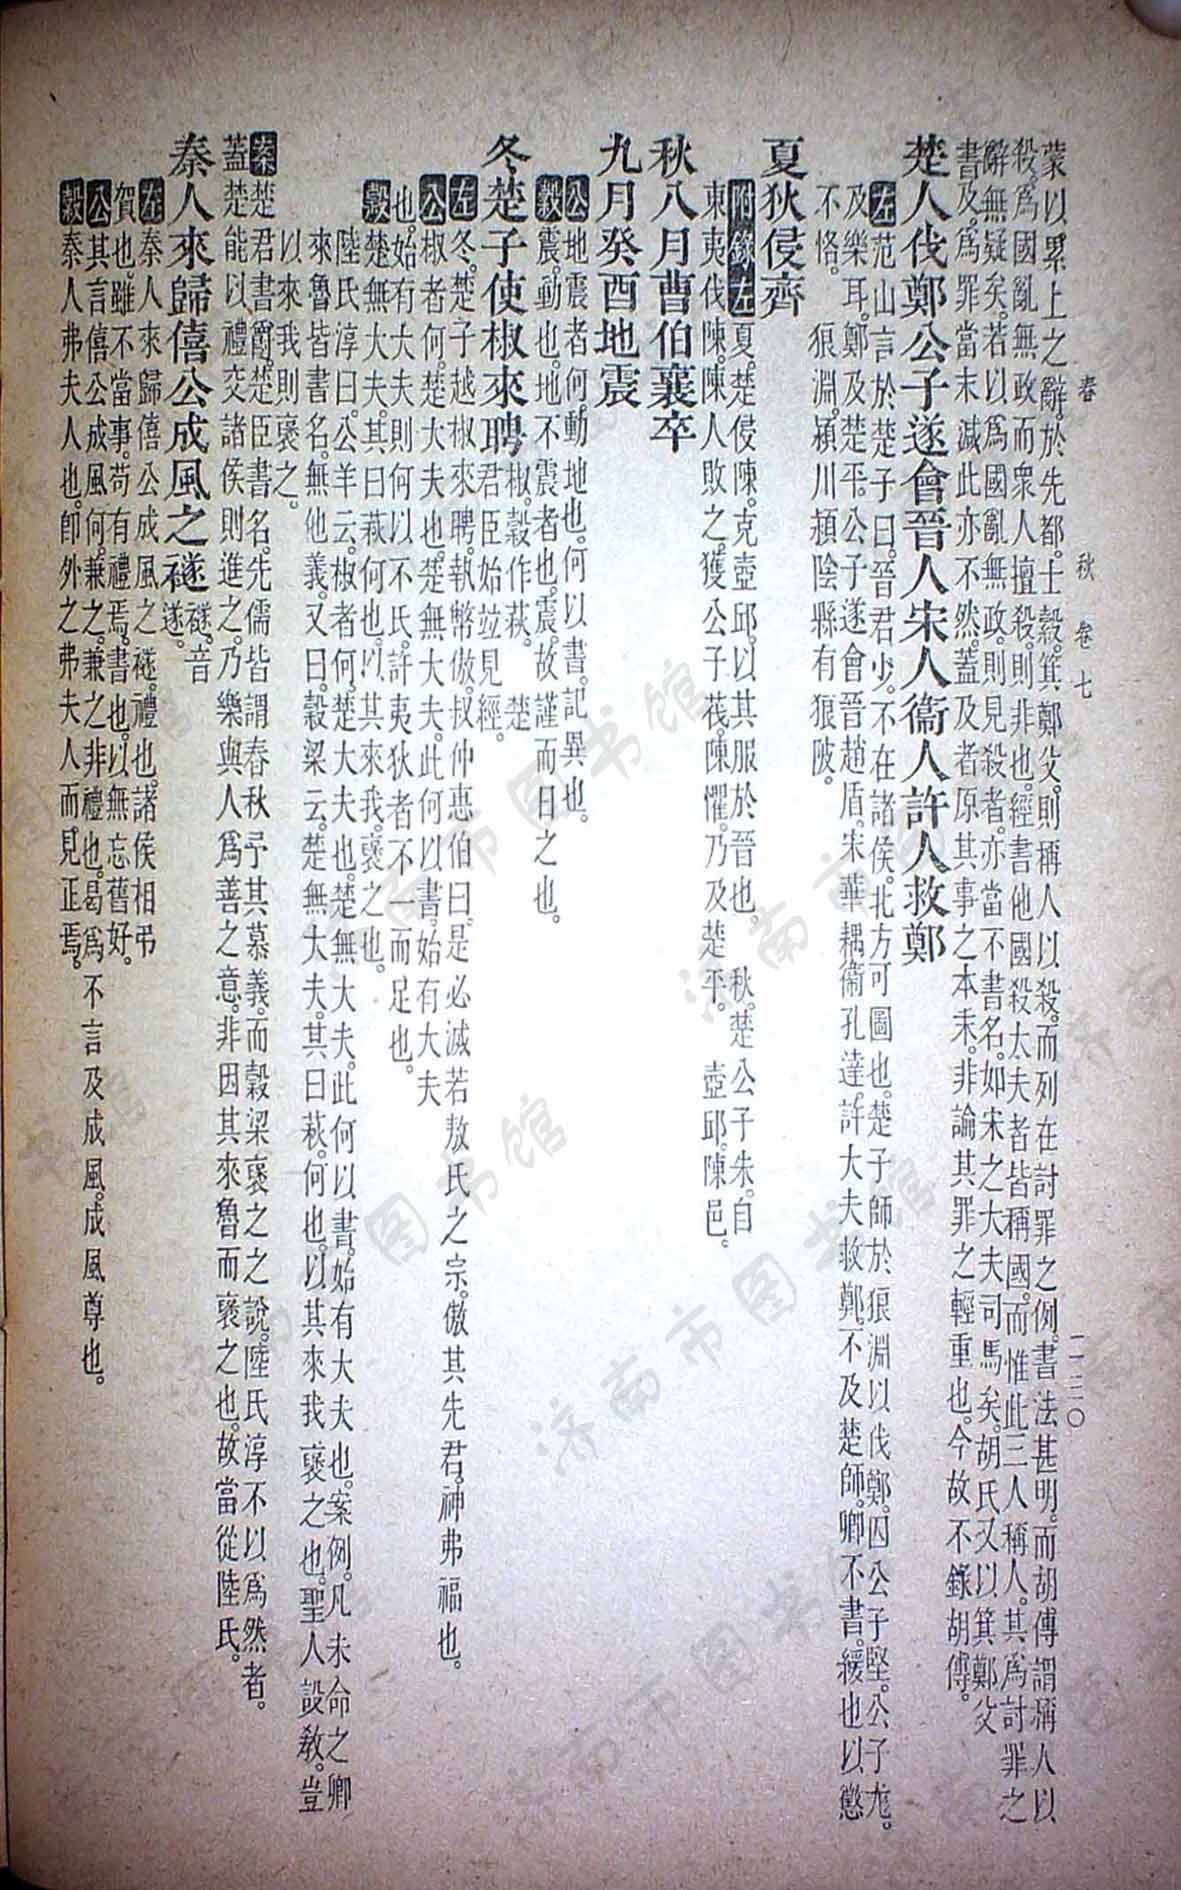 春　秋　卷七　一三〇
蒙以累上之辭於先都。士縠。箕鄭父。則稱人以殺。而列在討罪之例。書法甚明。而胡傳謂稱人以
殺。爲國亂無政而衆人擅殺。則非也。經書他國殺大夫者皆稱國。而惟此三人稱人。其爲討罪之
辭無疑矣。若以爲國亂無政。則見殺者。亦當不書名。如宋之大夫司馬矣。胡氏又以箕鄭父
書及。爲罪當末減。此亦不然。蓋及者原其事之本末。非論其罪之輕重也。今故不錄胡傳。
楚人伐鄭公子遂會晉人宋人衞人許人救鄭
左范山言於楚子曰。晉君少。不在諸侯。北方可圖也。楚子師於狼淵以伐鄭。囚公子堅。公子尨。
及樂耳。鄭及楚平。公子遂會晉趙盾。宋華耦。衞孔達。許大夫救鄭。不及楚師。卿不書。緩也以懲
不恪。　狼淵。潁川潁陰縣有狼陂。
夏狄侵齊
附錄左夏。楚侵陳。克壺邱。以其服於晉也。　秋。楚公子朱。自
東夷伐陳。陳人敗之。獲公子茷。陳懼。乃及楚平。　壺邱。陳邑。
秋八月曹伯襄卒
九月癸酉地震
公地震者何。動地也。何以書。記異也。
穀震。動也。地不震者也。震。故謹而日之也。
冬楚子使椒來聘椒。穀作萩。　楚君臣始竝見經。
左冬。楚子越椒來聘。執幣傲。叔仲惠伯曰。是必滅若敖氏之宗。傲其先君。神弗福也。
公椒者何。楚大夫也。楚無大夫。此何以書。始有大夫
也。始有大夫則何以不氏。許夷狄者不一而足也。
穀楚無大夫。其曰萩何也。以其來我。褒之也。
陸氏淳曰。公羊云。椒者何。楚大夫也。楚無大夫。此何以書。始有大夫也。案例。凡未命之卿
來魯皆書名。無他義。又曰。穀梁云。楚無大夫。其曰萩。何也。以其來我褒之也。聖人設敎。豈
以來我則褒之。
案楚君書爵。楚臣書名。先儒皆謂春秋予其慕義。而穀梁褒之之說。陸氏淳不以爲然者。
蓋楚能以禮交諸侯則進之。乃樂與人爲善之意。非因其來魯而褒之也。故當從陸氏。
秦人來歸僖公成風之襚襚。音遂。
左秦人來歸僖公成風之襚。禮也。諸侯相弔
賀也。雖不當事。苟有禮焉。書也。以無忘舊好。
公其言僖公成風何。兼之。兼之非禮也。曷爲不言及成風。成風尊也。
穀秦人弗夫人也。卽外之弗夫人而見正焉。